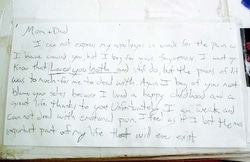 Mom + Dad
I can not express my apologies in words for the pain
I have caused you, but I beg for your forgiveness. I want you to
know that I loved you both and still do but the pains of life
was to much for me to deal with. Again I beg of you not
blame your selves because I lived a happy childhood and a
great life thanks to you. Unfortunately I am weak and
can not deal with emotional pain. I feel as if I lost the most
important part of my life that will ever exist